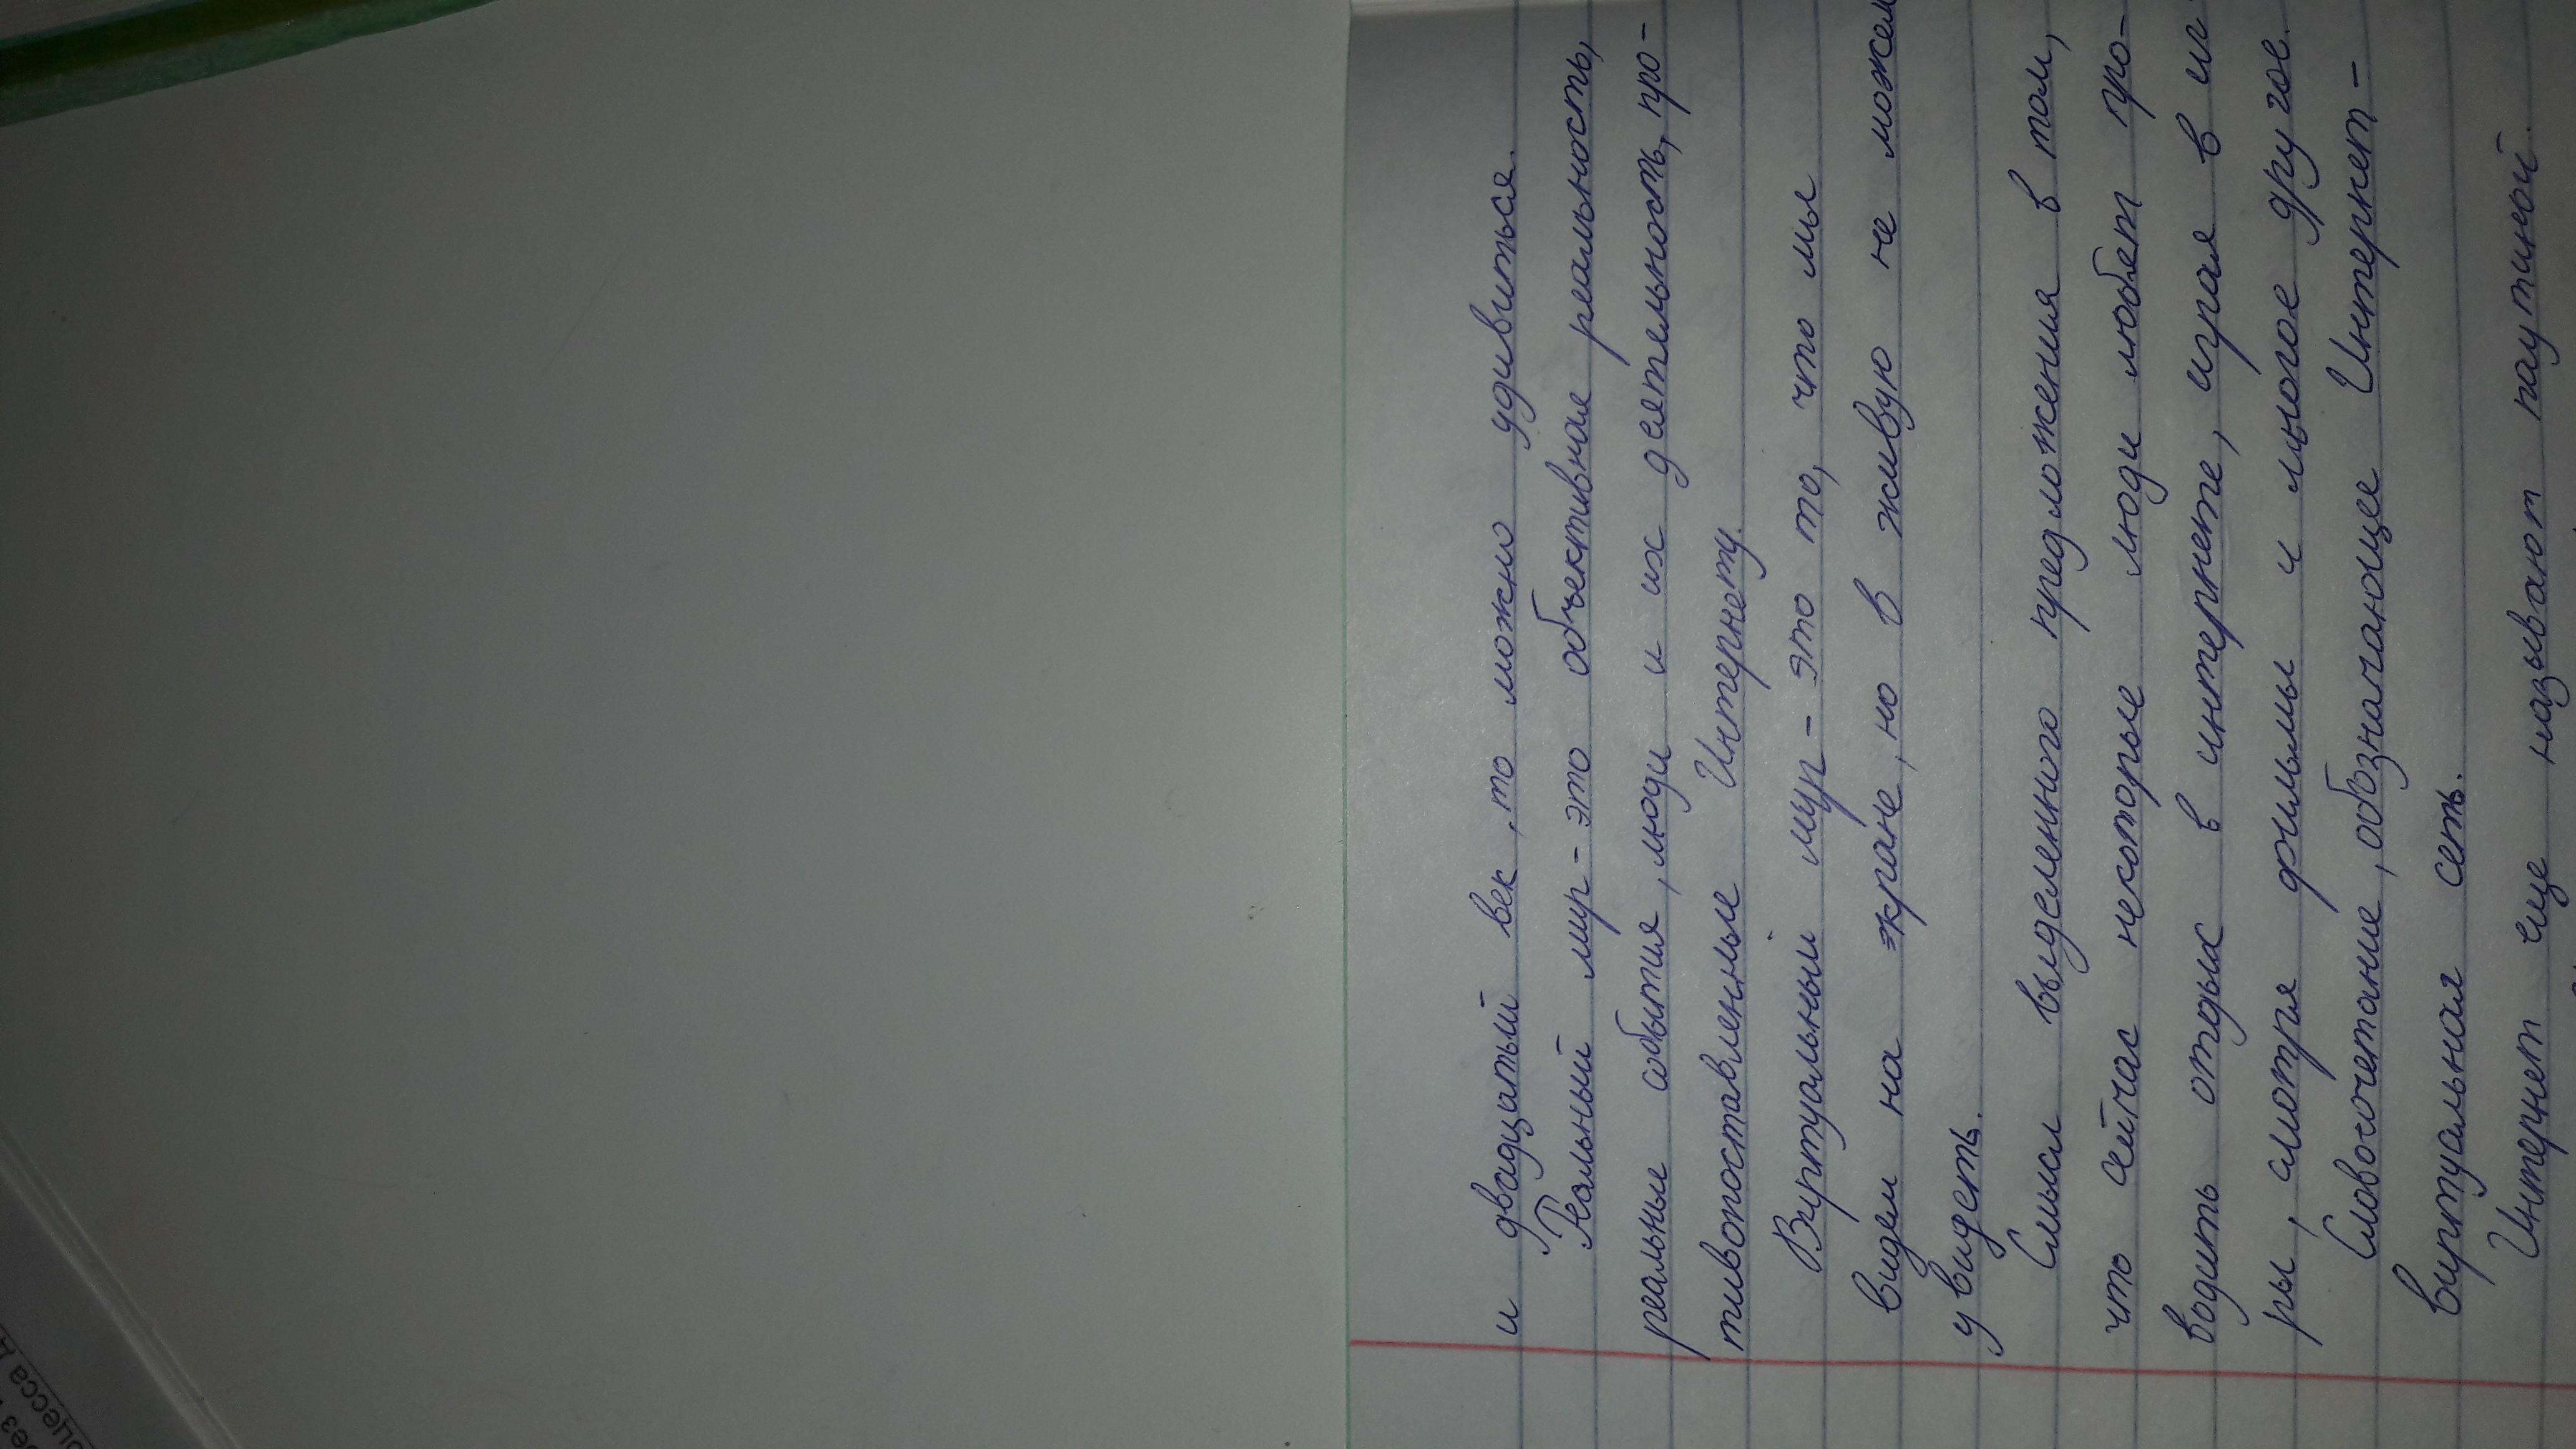 и двадцатый век, то можно удивиться.
Реальный мир - это объективная реальность,
реальные события, люди и их деятельность, про-
тивопоставленные Интернету.
Виртуальный мир - это то, что мы
видем на экране, но в живую не можем
увидеть.
Смысл выделенного предложения в том,
что сейчас некоторые люди любят про-
водить отдых в интернете, играя в иг-
ры, смотря фильмы и многое другое.
Словосочетание, обозначающее Интернет -
виртуальная сеть.
Интернет еще называют паутиной.
оцесса д
рез